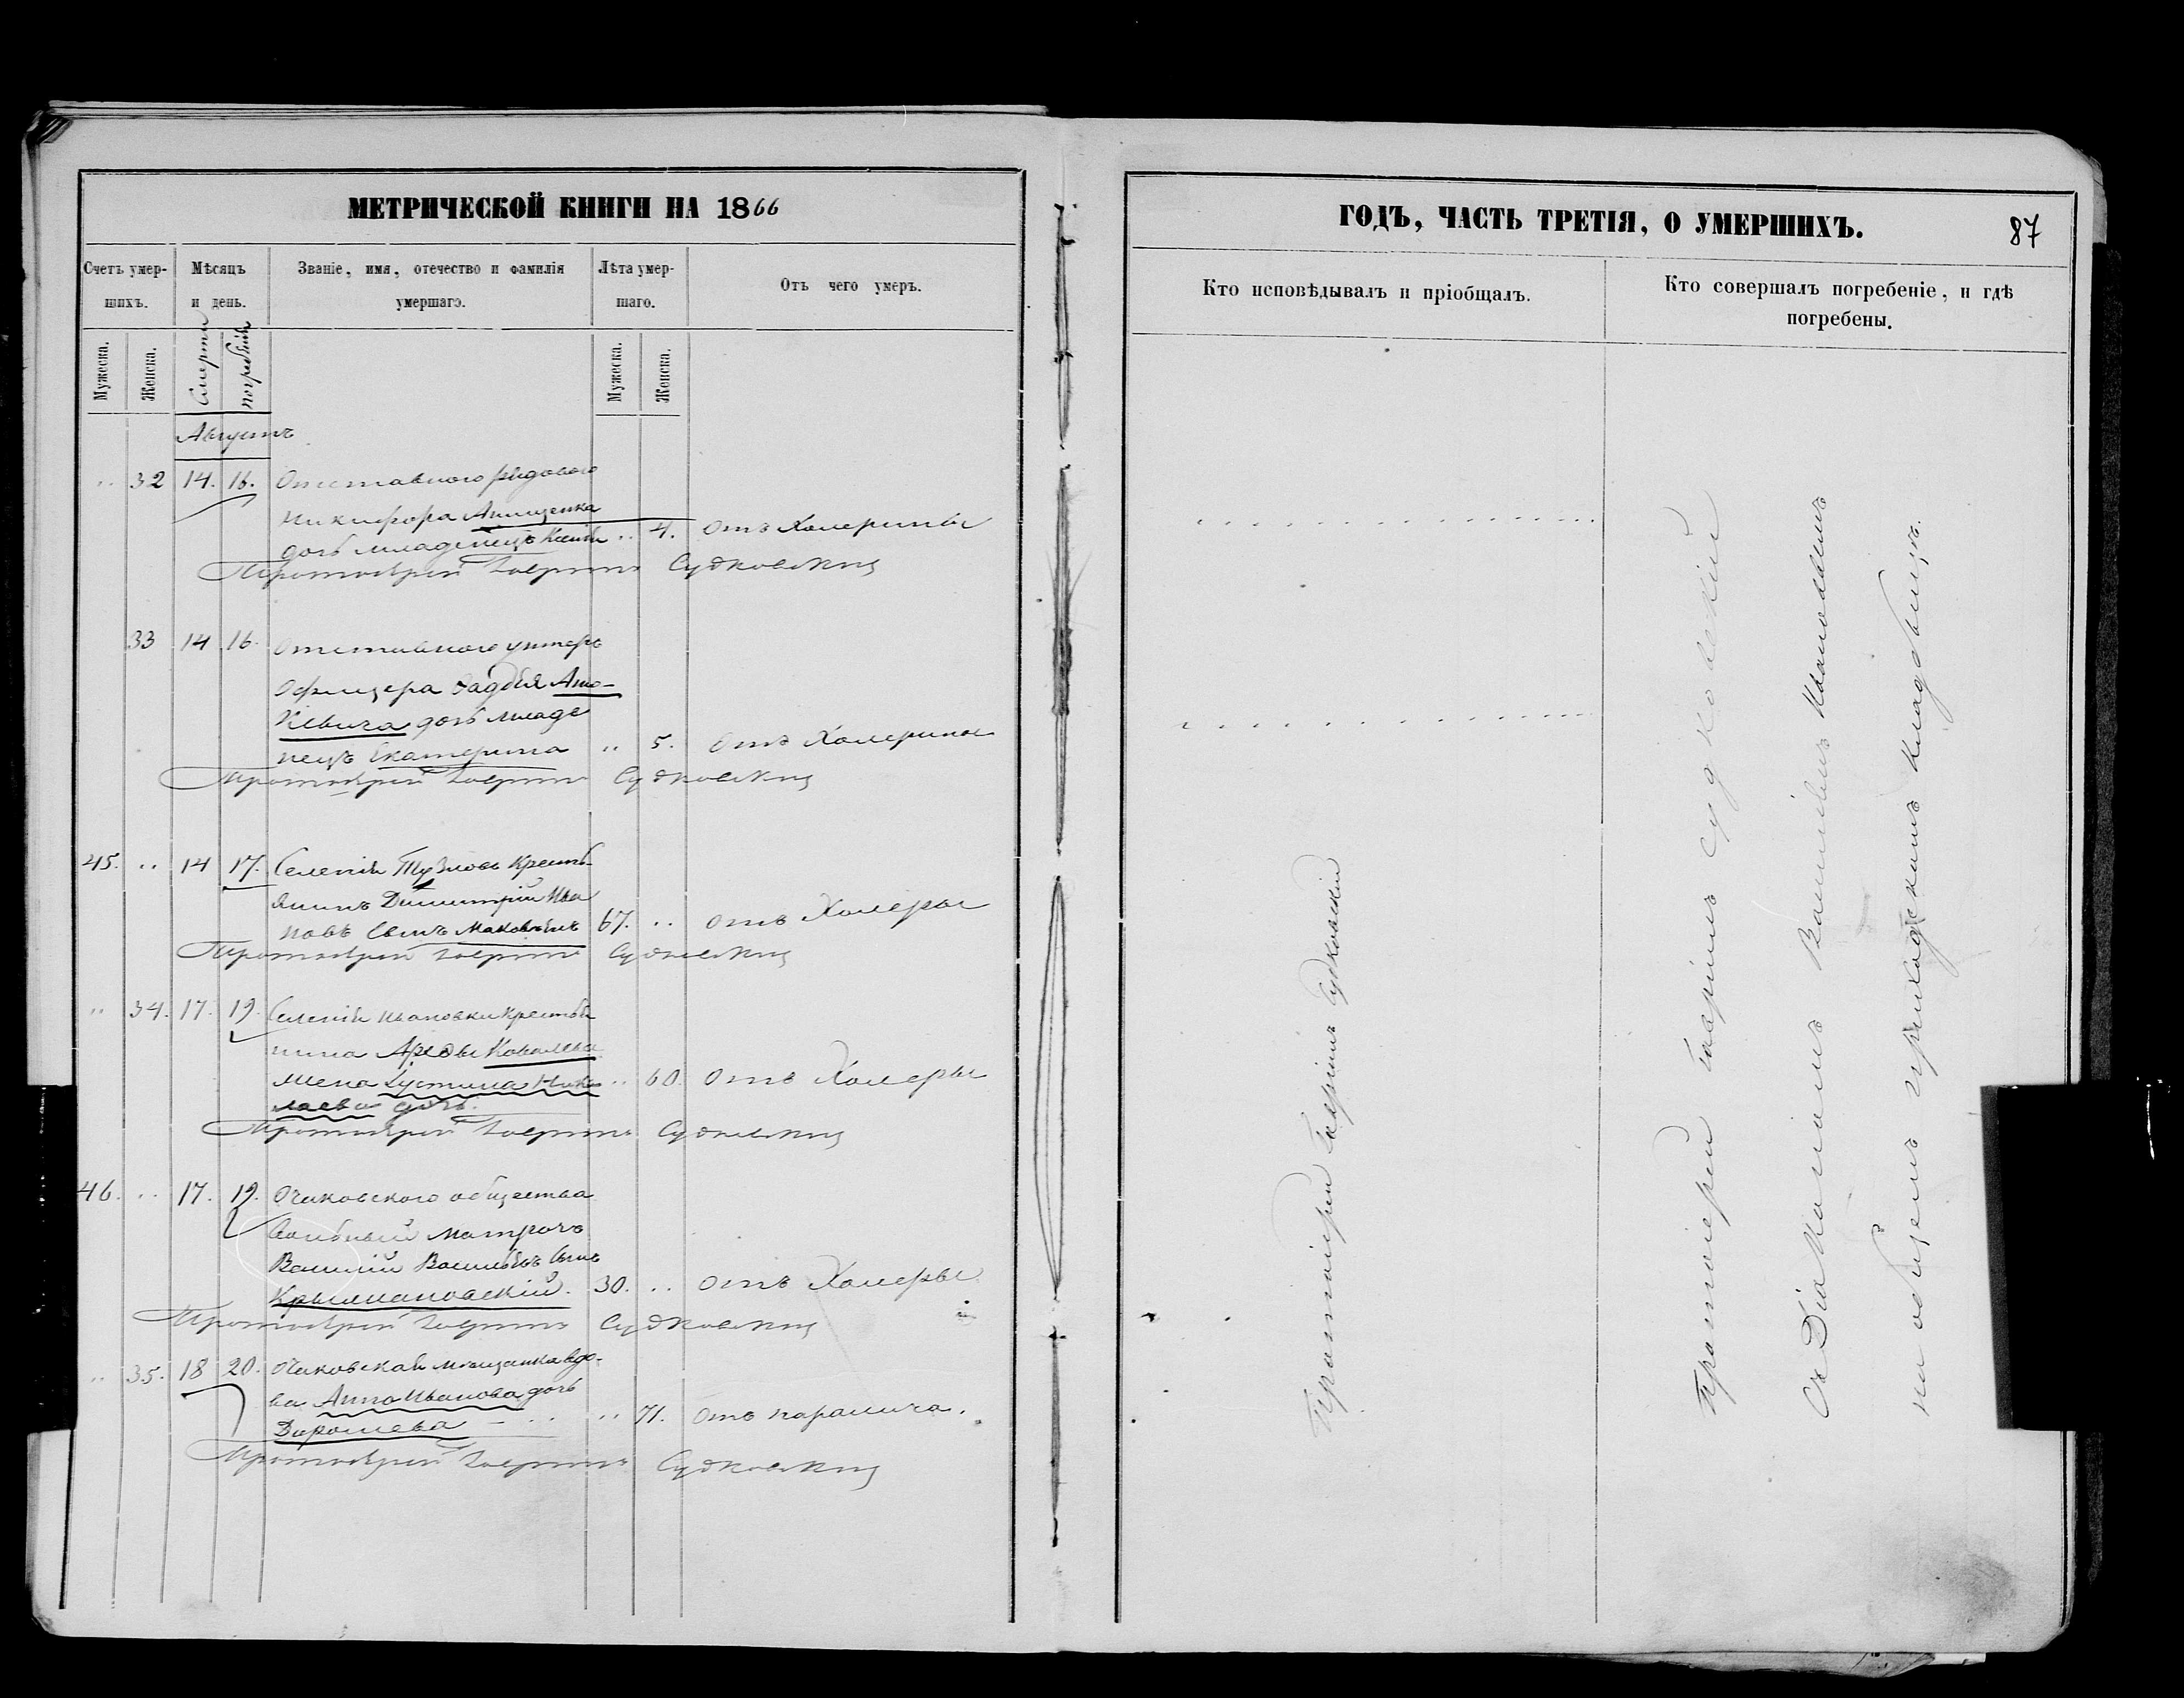 МЕТРИЧЕСКОЙ КНИГИ НА 1866
Счетъ умер-
шихъ.
Мѣсяцъ
и день.
Званіе, имя, отечество и фамилія
умершаго.
Лѣта умер-
шаго.
Отъ чего умеръ.
Мужеска.
Женска.
Смерти
погребенія
Мужеска.
Женска.
Августъ
32 14. 16. Отставного рядового
Никифора
дочь младенецъ Ксенія 4. отъ Холерины
Протоіерей Гавріилъ Судковскій
33 14 16. Отставного унтеръ
Офицера Фаддея
дочь младе
нецъ Екатерина 5. отъ Холерины
Протоіерей Гавріилъ Судковскій
45. 14 17. Селенія Тузловъ Кресть-
янинъ Димитрій Ива
новъ Сынъ 67. отъ Холеры
Протоіерей Гавріилъ Судковскій
34. 17. 19. Селенія Ивановки Крестья
нина
жена Іустина Нико
лаева дочь. 60. отъ Холеры
Протоіерей Гавріилъ Судковскій
46. 17. 19. Очаковского общества
Вольный матросъ
Василій Васильевъ Сынъ
Крыжановскій. 30. отъ Холеры
Протоіерей Гавріилъ Судковскій
35. 18 20. Очаковская мещанка вдо-
ва Анна Иванова дочь
71. отъ паралича.
Протоіерей Гавріилъ Судковскій
ГОДЪ, ЧАСТЬ ТРЕТІЯ, О УМЕРШИХЪ.
87
Кто исповѣдывалъ и пріобщалъ.
Кто совершалъ погребеніе, и гдѣ
погребены.
Протоіерей Гавріилъ Судковскій
Протоіерей Гавріилъ Судковскій
Съ Діакономъ
на общемъ приходскомъ кладбищѣ.